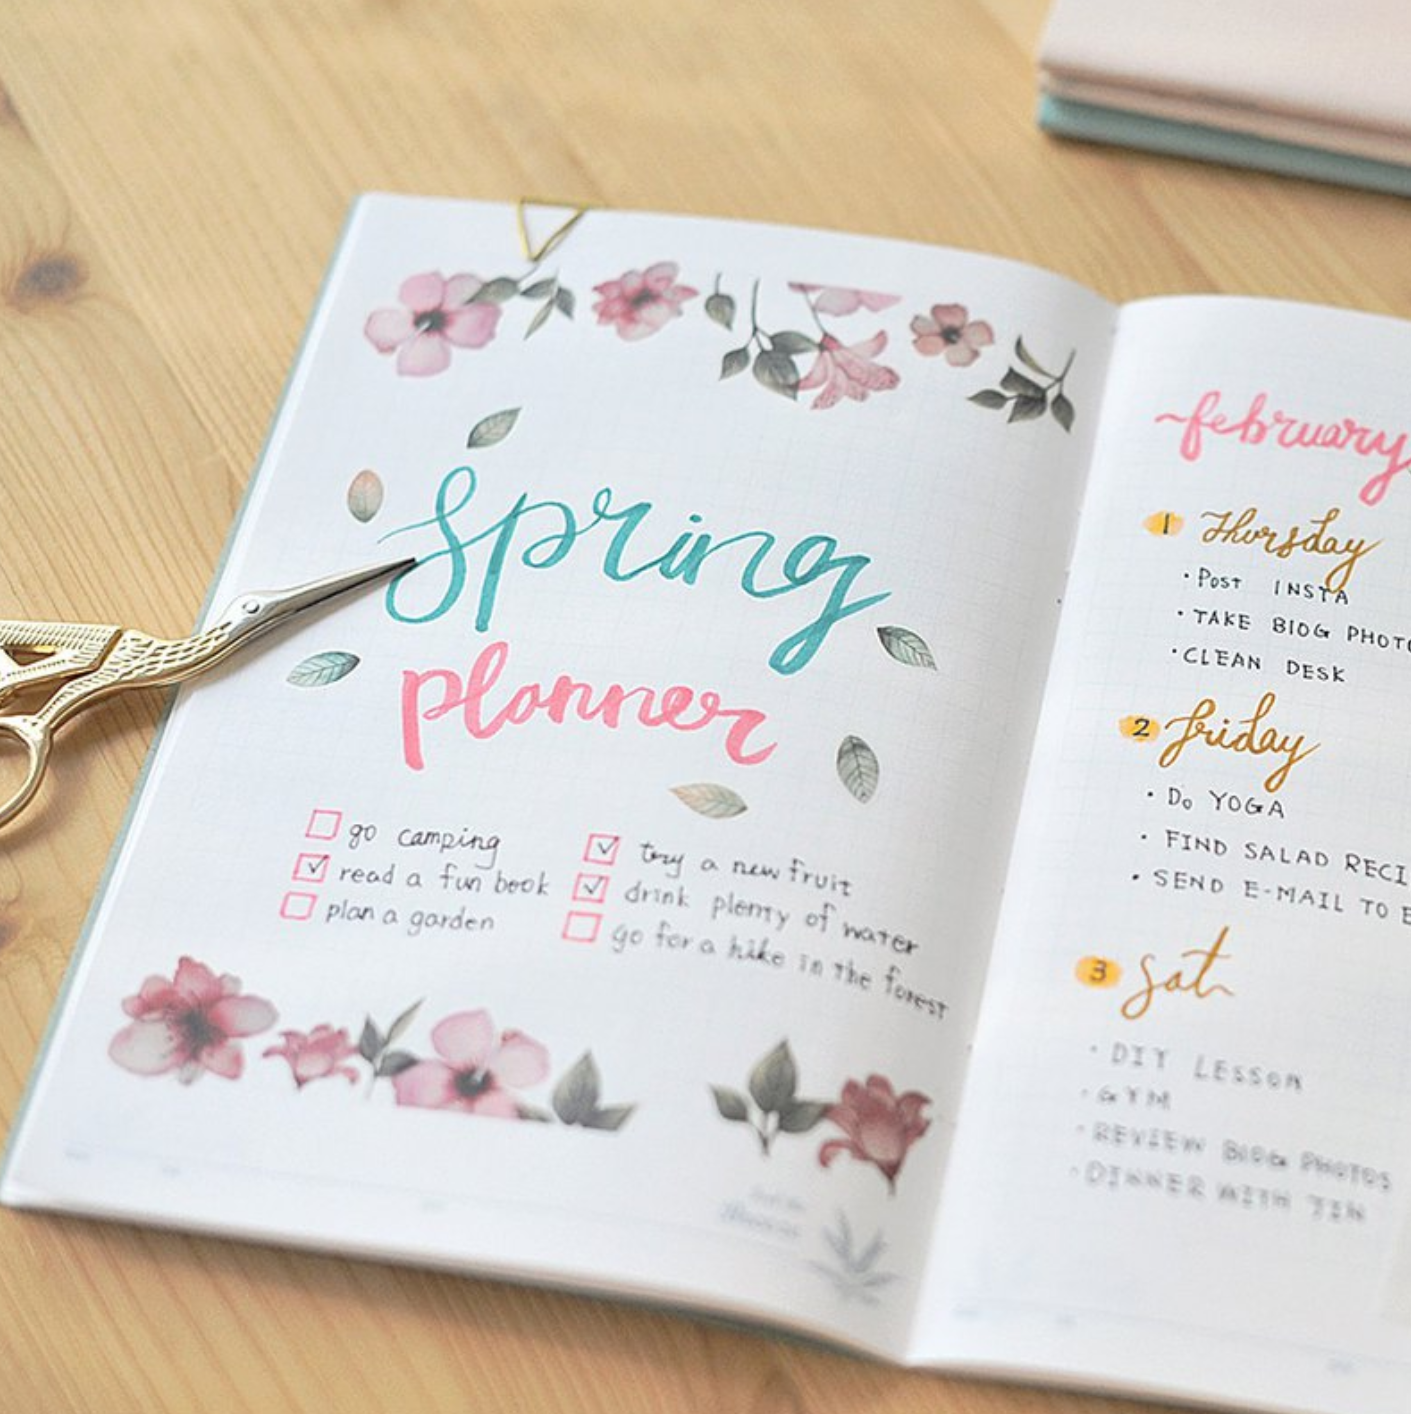 Spring
planner
go camping
read a fun book
plan a garden
try a new fruit
drink plenty of water
go for a hike in the forest
february
1 Thursday
• Post INSTA
• TAKE BlOG PHOTO
• CLEAN DESK
2 friday
• Do YOGA
• FIND SALAD RECI
• SEND E-MAIL TO
3 sat
• DIY LESSON
• GYM
• REVIEW BlOG PHOTOS
• DINNER WITH